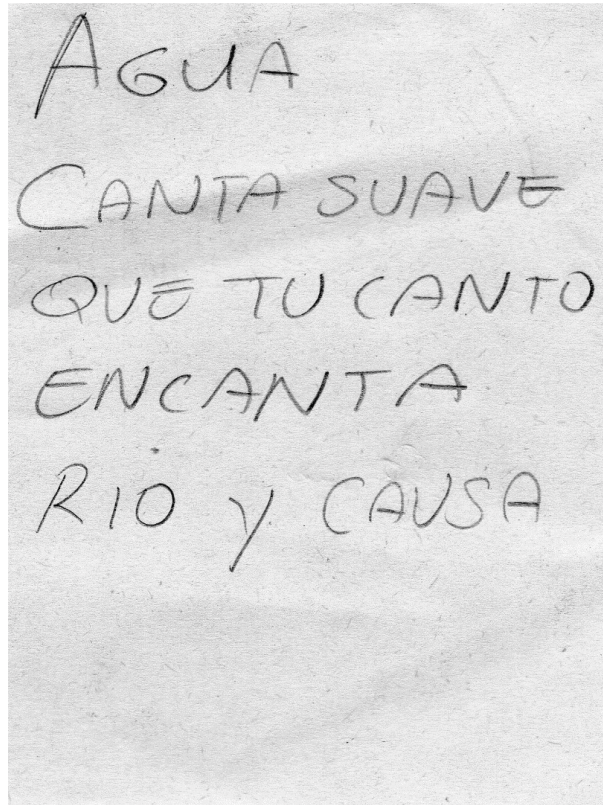 AGUA
CANTA SUAVE
QUE TU CANTO
ENCANTA
RIO y CAUSA